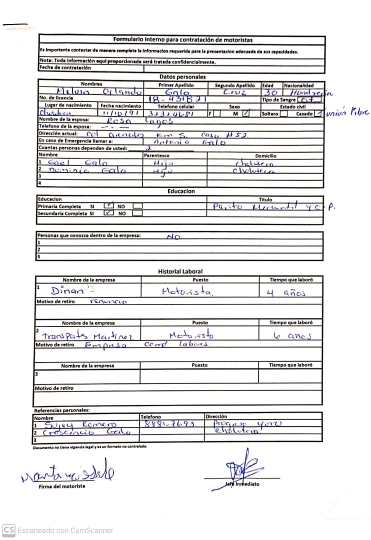 Formulario Interno para contratación de motoristas
Es importante contestar de manera completa la informacion requerida para la presentación adecuada de sus capacidades.
Nota: Toda información aquí proporcionada será tratada confidencialmente.
Fecha de contratación
Datos personales
Nombres Primer Apellido Segundo Apellido Edad Nacionalidad
Melvin Orlando Galo Cruz 30 Hondureña
No. de licencia Tipo de Sangre
Lugar de nacimiento Fecha nacimiento Telefono celular Sexo Estado civil
Choluteca 11/10/91 F M Soltero Casado unión libre
Nombre de la esposa: Rosa Lagos
Telefono de la esposa: - - -
Dirección actual: casa #52
En caso de Emergencia llamar a: Antonio Galo
Cuantas personas dependen de usted: 2
Nombre Parentesco Domicilio
1 Gael Galo Hijo choluteca
2 Galo Hijo choluteca
3
4
Educacion
Educacion Titulo
Primaria Completa SI NO Perito Mercantil y C.P.
Secundaria Completa SI NO
Personas que conozca dentro de la empresa: No.
1
2
3
Historial Laboral
Nombre de la empresa Puesto Tiempo que laboró
1 Dinan Motorista 4 años
Motivo de retiro renuncio
Nombre de la empresa Puesto Tiempo que laboró
2 Transpats Martinez Motorista 6 años
Motivo de retiro Empresa labores
Nombre de la empresa Puesto Tiempo que laboró
3
Motivo de retiro
Referencias personales:
Nombre Telefono Dirección
1 Romero
2 Crescencio Galo choluteca
3
Documento no tiene vigencia legal y es un formato no controlado.
Firma del motorista Jefe Inmediato
CS Escaneado con CamScanner